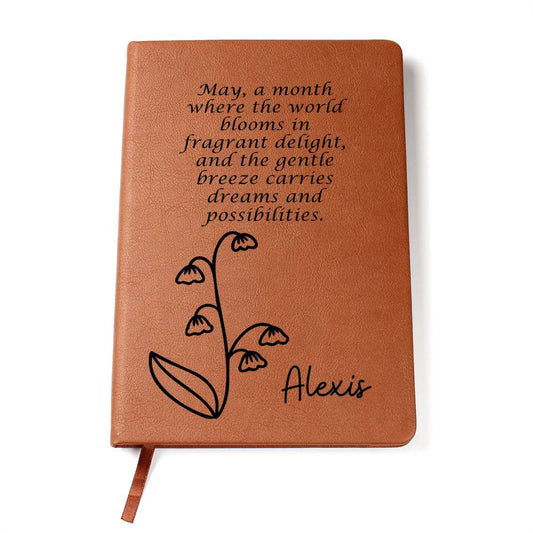 May, a month
where the world
blooms in
fragrant delight,
and the gentle
breeze carries
dreams and
possibilities.
Alexis